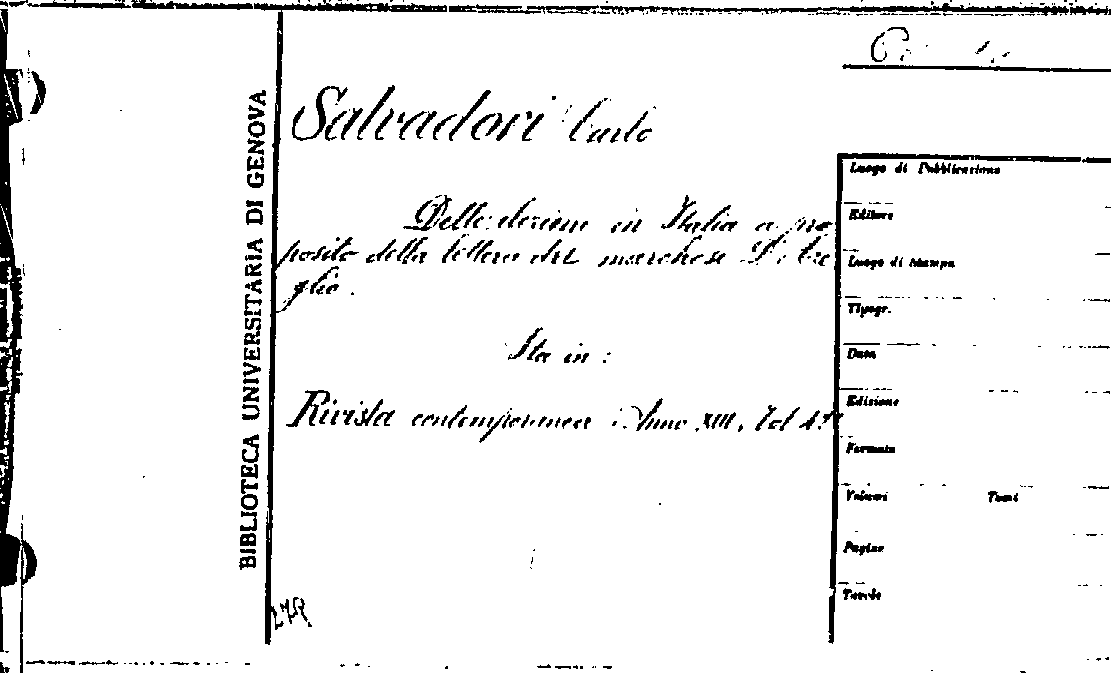 BIBLIOTECA UNIVERSITARIA DI GENOVA
Salvadori Carlo
Delle decime in Italia a pro
posito della lettera del marchese
glio.
Sta in:
Rivista contemporanea Anno XIII, Vol
Luogo di Pubblicazione
Editore
Luogo di Stampa
Tipogr.
Data
Edizione
Formato
Volumi Tomi
Pagine
Tavole